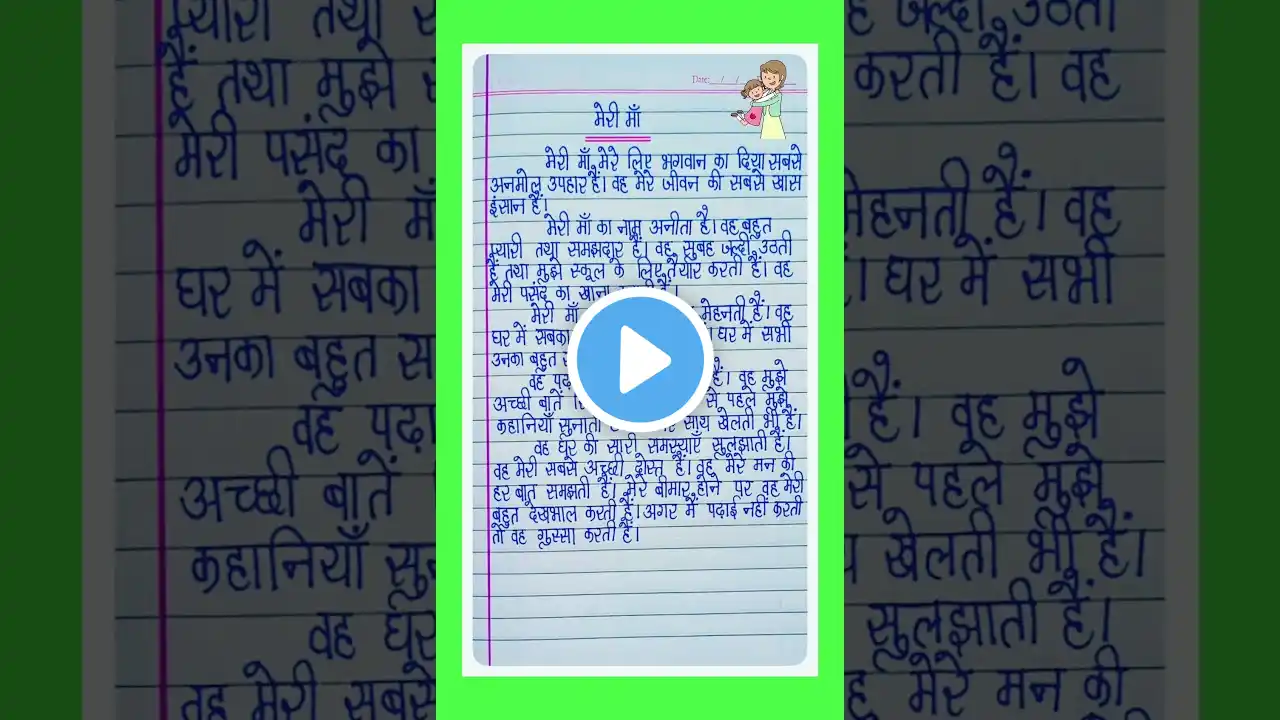 Date:__/__/__
मेरी माँ
मेरी माँ मेरे लिए भगवान का दिया सबसे
अनमोल उपहार हैं। वह मेरे जीवन की सबसे खास
इंसान हैं।
मेरी माँ का नाम अनीता है। वह बहुत
प्यारी तथा समझदार हैं। वह सुबह जल्दी उठती
हैं तथा मुझे स्कूल के लिए तैयार करती हैं। वह
मेरी पसंद का खाना हैं।
मेरी माँ मेहनती हैं। वह
घर में सबका घर में सभी
उनका बहुत
वह हैं। वह मुझे
अच्छी बातें से पहले मुझे
कहानियाँ सुनाती साथ खेलती भी हैं।
वह घर की सारी समस्याएँ सुलझाती हैं।
वह मेरी सबसे अच्छी दोस्त हैं। वह मेरे मन की
हर बात समझती हैं। मेरे बीमार होने पर वह मेरी
बहुत देखभाल करती हैं। अगर मैं पढ़ाई नहीं करती
तो वह गुस्सा करती हैं।